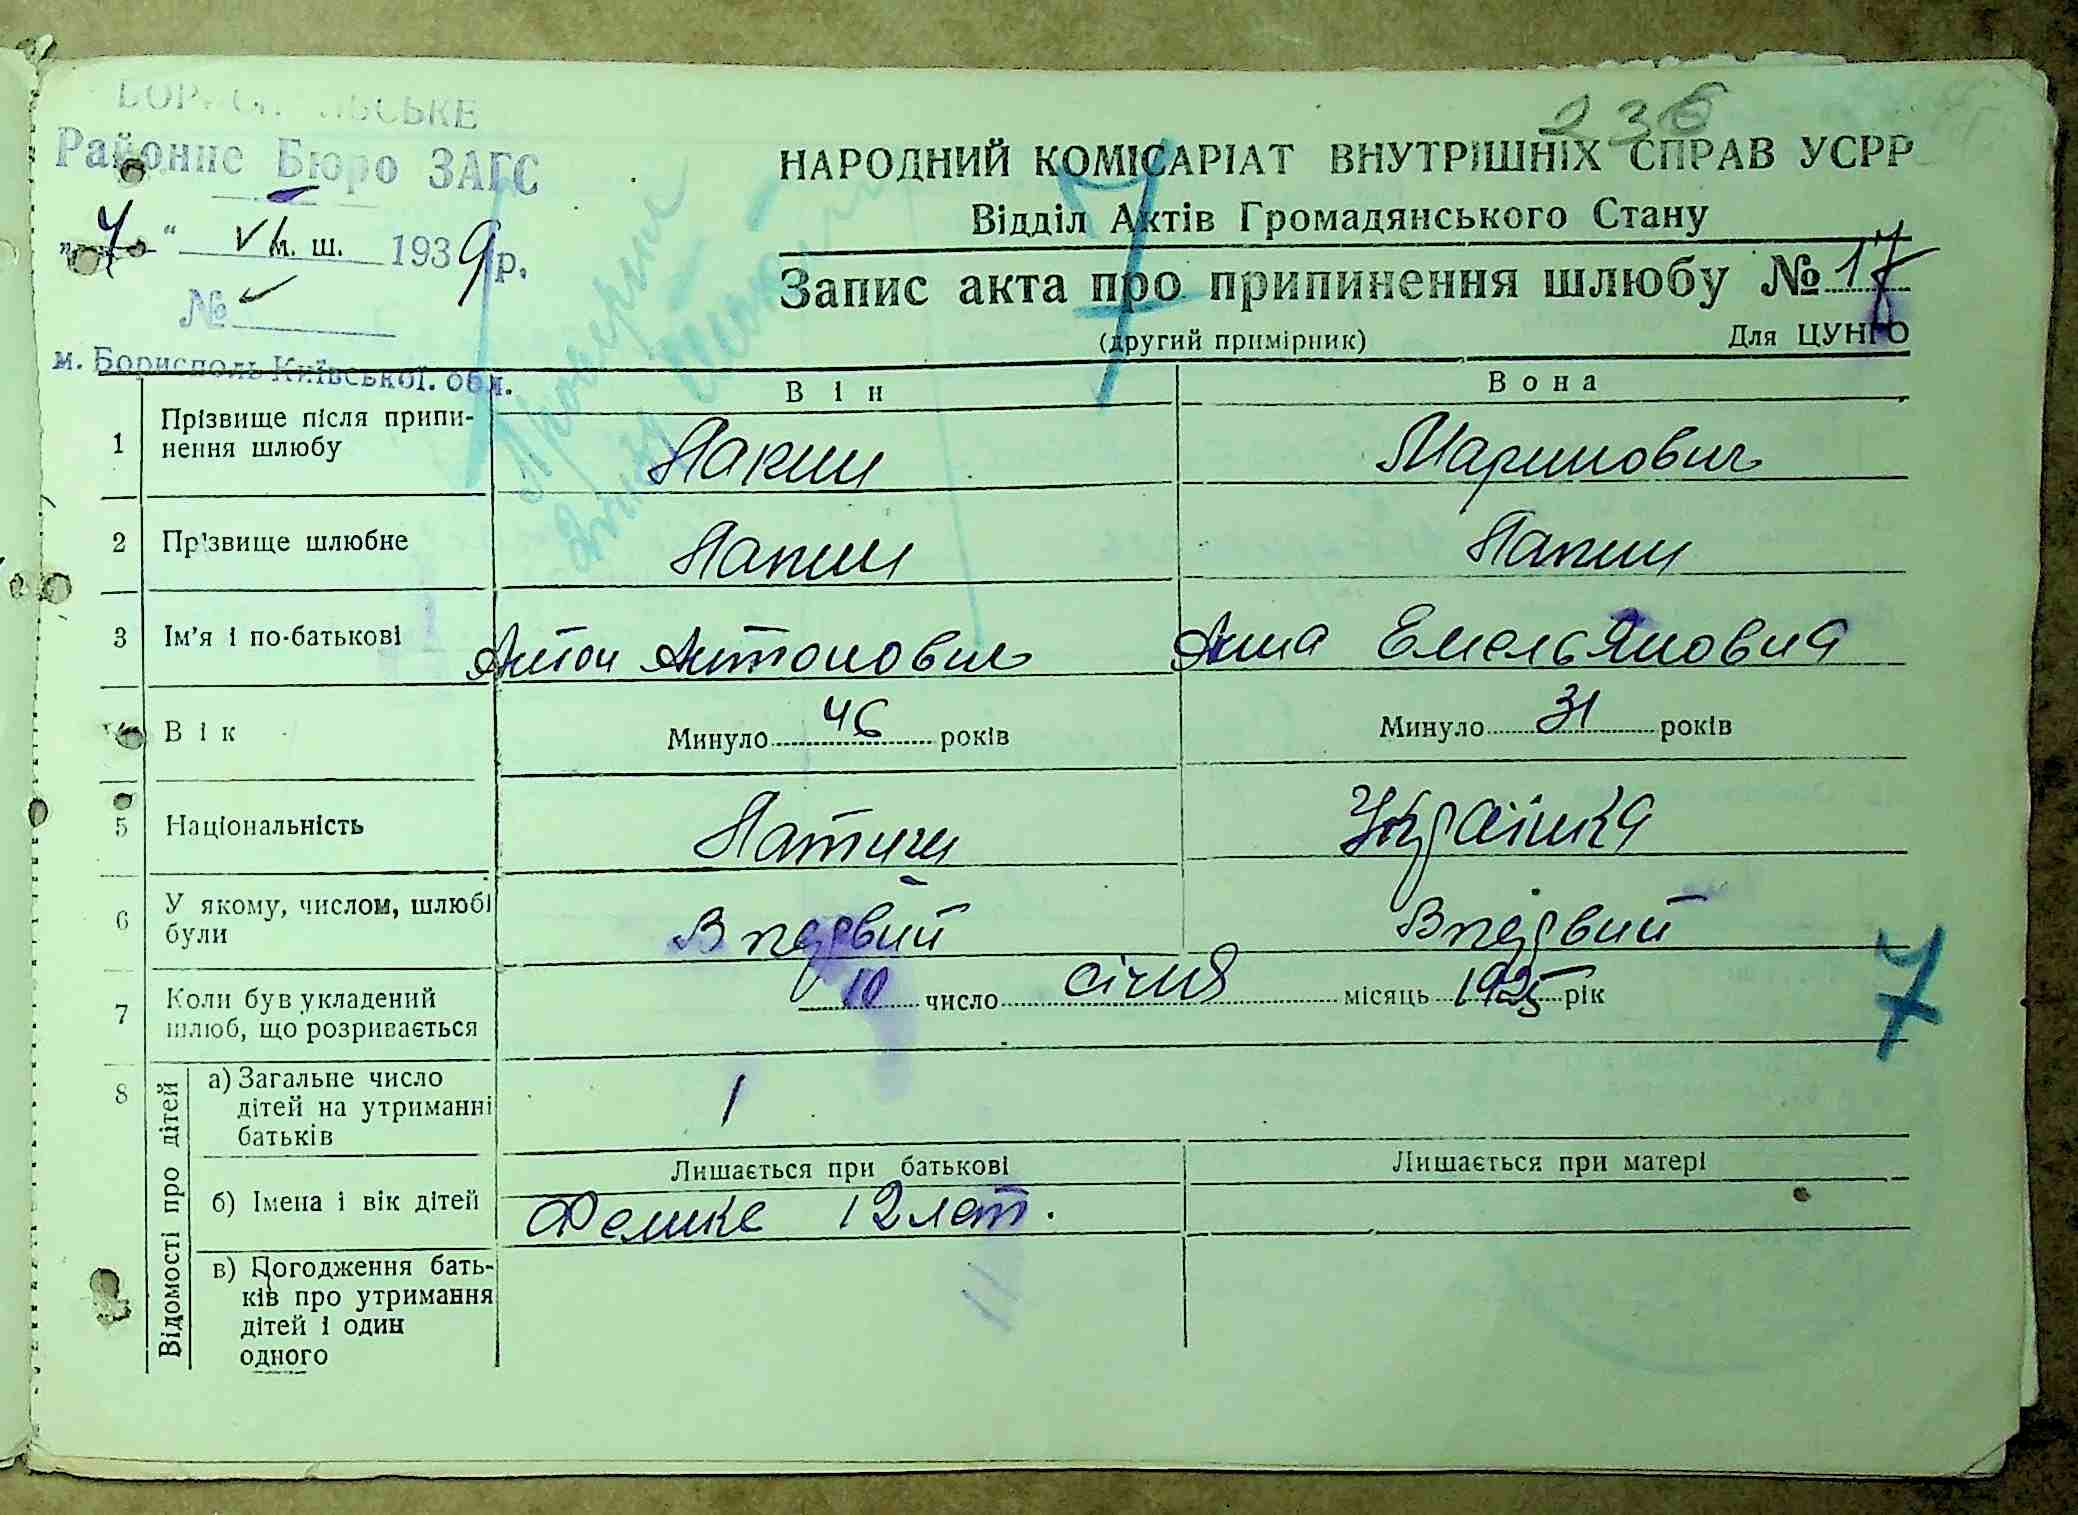 Районне Бюро ЗАГС
236
НАРОДНИЙ КОМІСАРІАТ ВНУТРІШНІХ СПРАВ УСРР
Відділ Актів Громадянського Стану
„4“ VI м. ш. 1939 р.
№
Запис акта про припинення шлюбу № 17
(другий примірник) Для ЦУНГО
м. Бориспoль Київської. обл.
7
Він Вона
1 Прізвище після припи-
нення шлюбу Маринович
2 Прізвище шлюбне
3 Ім’я і по-батькові Антон Антонович Анна Емельяновна
4 Вік Минуло 46 років Минуло 31 років
5 Національність Українка
6 У якому, числом, шлюбі
були Впервий Впервий
7 Коли був укладений
шлюб, що розривається 10 число січня місяць 1925 рік
7
8 Відомості про дітей
а) Загальне число
дітей на утриманні
батьків 1
Лишається при батькові Лишається при матері
б) Імена і вік дітей 12 лет.
в) Погодження бать-
ків про утримання
дітей і один
одного